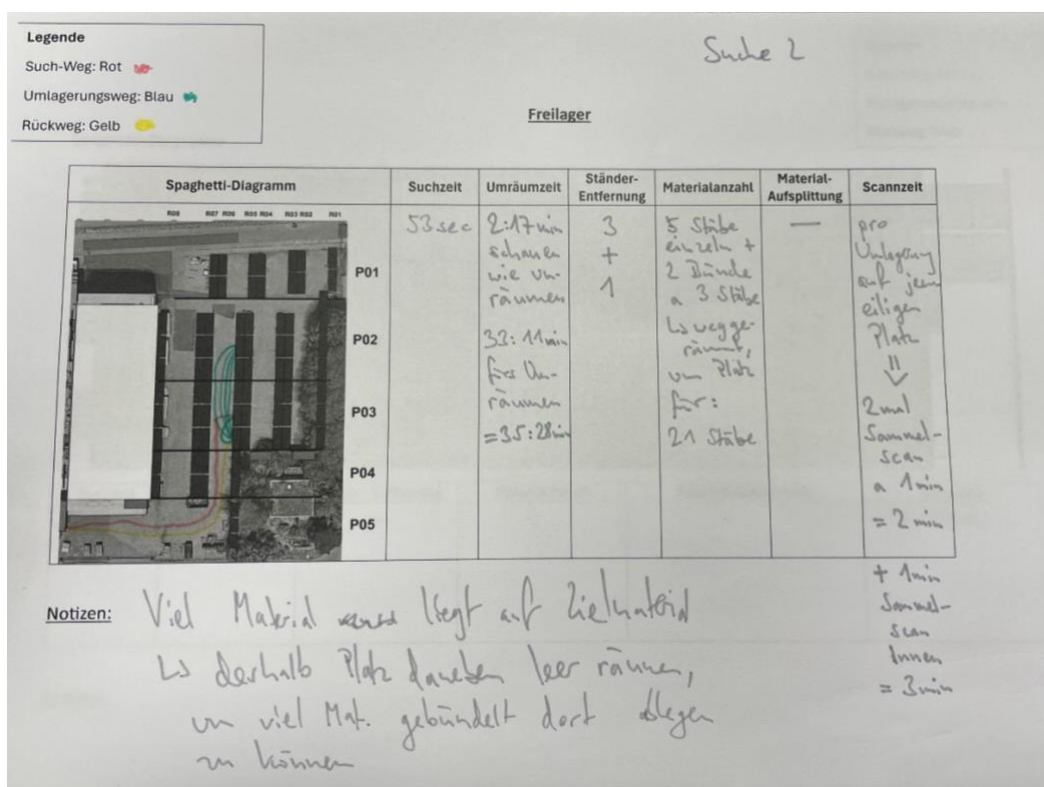 Legende
Such-Weg: Rot
Umlagerungsweg: Blau
Rückweg: Gelb
Suche 2
Freilager
Spaghetti-Diagramm
Suchzeit
Umräumzeit
Ständer-
Entfernung
Materialanzahl
Material-
Aufsplittung
Scannzeit
R08 R07 R06 R05 R04 R03 R02 R01
P01
P02
P03
P04
P05
53 sec
2:17 min
schauen
wie Um-
räumen
33:11 min
fürs Um-
räumen
=35:28 min
3
+
1
5 Stäbe
einzeln +
2 Bünde
a 3 Stäbe
↳ wegge-
räumt,
um Platz
für:
21 Stäbe
—
pro
Umlagerung
auf jew
eiligen
Platz
⇓
2 mal
Sammel-
scan
a 1 min
= 2 min
+ 1 min
Sammel-
scan
Innen
= 3 min
Notizen:
Viel Material liegt auf Zielmaterial
↳ deshalb Platz daneben leer räumen,
um viel Mat. gebündelt dort ablegen
zu können